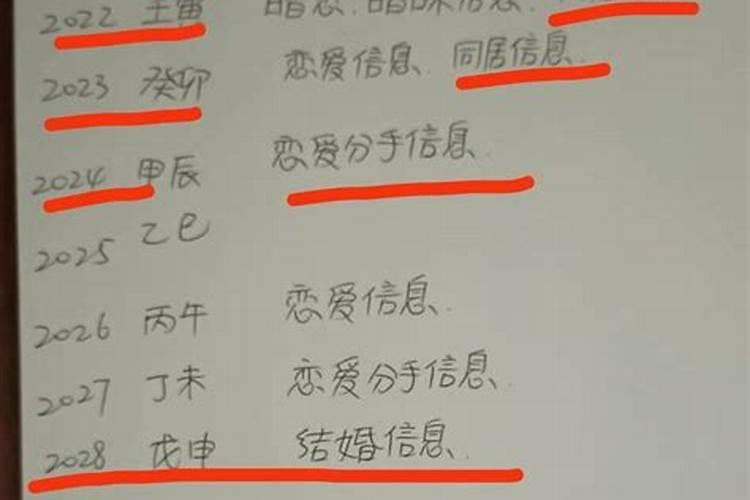 2022 壬寅 暗恋、暗昧信息、
2023 癸卯 恋爱信息、同居信息.
2024 甲辰 恋爱分手信息.
2025 乙巳
2026 丙午 恋爱信息.
2027 丁未 恋爱分手信息.
2028 戊申 结婚信息.